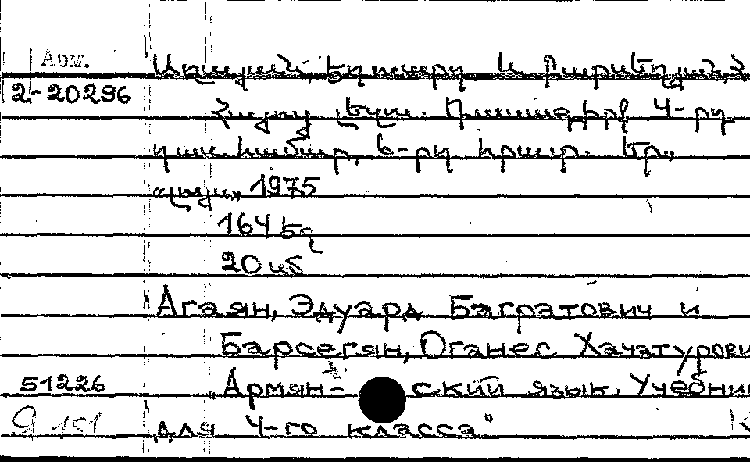 Арм. Աղայան, Էդուարդ և Բարսեղյան, Հ
2-20296
Հայոց լեզու. Դասագիրք 4-րդ
դաս. համար. 6-րդ հրատ. Եր.,
«Լույս», 1975
164 էջ
20 կ
Агаян, Эдуард Багратович и
Барсегян, Оганес Хачатурови
51226 „Армян- ский язык. Учебни
для 4-го класса"